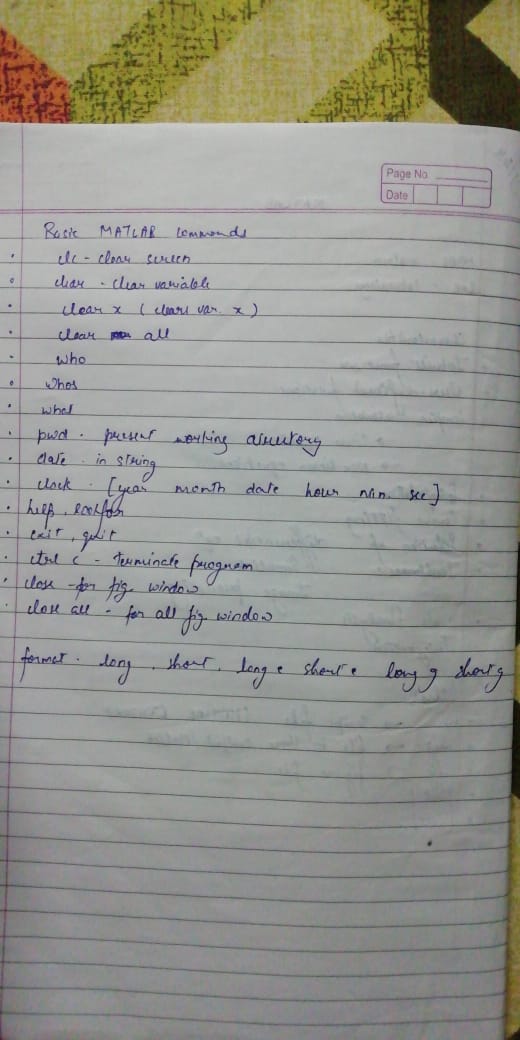 Page No.
Date
Basic MATLAB commands
clc - clear screen
clear - clear variable
clear x ( clears var. x )
clear all
who
whos
what
pwd - present working directory
date - in string
clock - [year month date hour min. sec]
help, lookfor
exit, quit
ctrl c - terminate program
close - for fig. window
close all - for all fig. window
format - long, short, long e short e long g short g